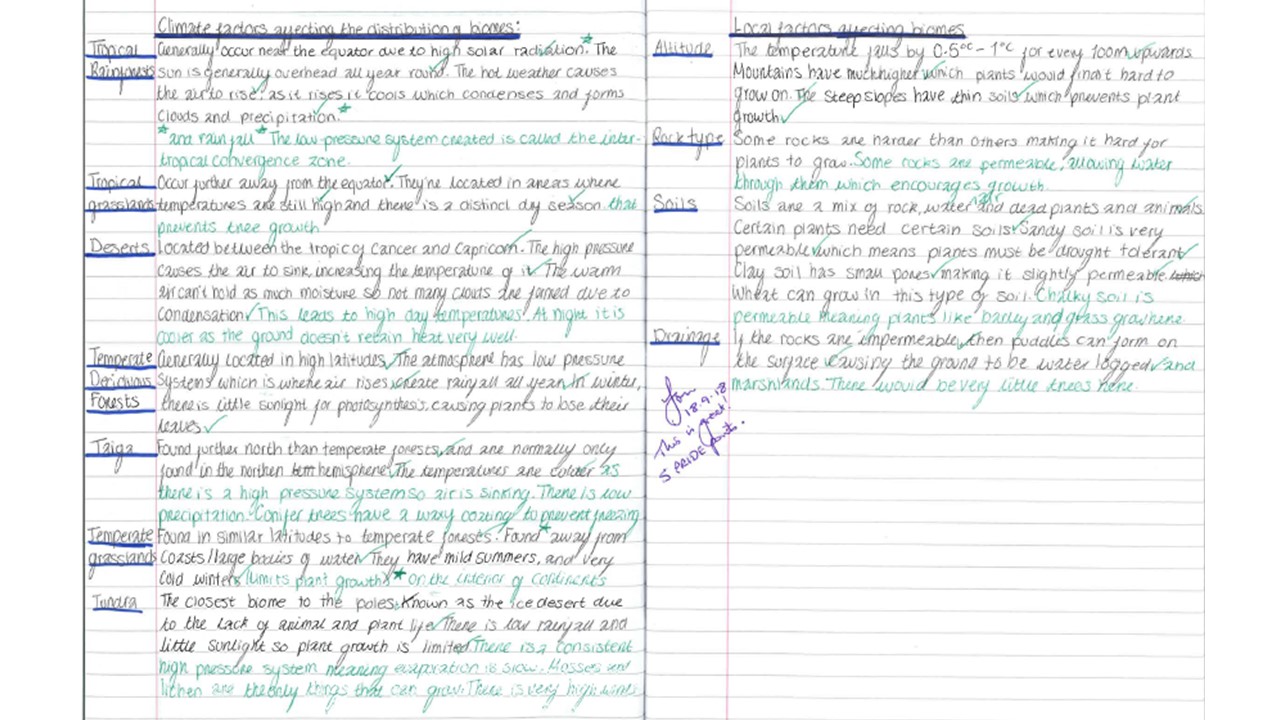 Climate factors affecting the distribution of biomes:
Tropical Generally occur near the equator due to high solar radiation.* The
Rainforests sun is generally overhead all year round. The hot weather causes
the air to rise. as it rises it cools which condenses and forms
clouds and precipitation.*
*and rainfall* The low pressure system created is called the inter-
tropical convergence zone.
Tropical Occur further away from the equator. They're located in areas where
grasslands temperatures are still high and there is a distinct dry season that
prevents tree growth
Deserts Located between the tropic of Cancer and Capricorn. The high pressure
causes the air to sink, increasing the temperature of it. The warm
air can't hold as much moisture so not many clouds are formed due to
condensation. This leads to high day temperatures. At night it is
cooler as the ground doesn't retain heat very well.
Temperate Generally located in high latitudes. The atmosphere has low pressure
Deciduous systems which is where air rises, create rainfall all year. In winter,
Forests there is little sunlight for photosynthesis, causing plants to lose their
leaves
Taiga Found further north than temperate forests, and are normally only
found in the northen hemisphere. The temperatures are colder as
there is a high pressure system so air is sinking. There is low
precipitation. Conifer trees have a waxy coating to prevent freezing
Temperate Found in similar latitudes to temperate forests. Found* away from
grasslands coasts/large bodies of water. They have mild summers, and very
cold winters limits plant growth. *on the interior of continents
Tundra The closest biome to the poles. Known as the ice desert due
to the lack of animal and plant life. There is low rainfall and
little sunlight so plant growth is limited. There is a consistent
high pressure system meaning evaporation is slow. Mosses and
lichen are the only things that can grow. There is very high winds
Local factors affecting biomes
Altitude The temperature falls by 0.5°c - 1°c for every 100m upwards.
Mountains have much higher which plants would find it hard to
grow on. The steep slopes have thin soils which prevents plant
growth.
Rock type Some rocks are harder than others making it hard for
plants to grow. Some rocks are permeable, allowing water
through them which encourages growth.
Soils Soils are a mix of rock, water and dead plants and animals.
Certain plants need certain soils. Sandy soil is very
permeable which means plants must be drought tolerant
Clay soil has small pores making it slightly permeable. which
Wheat can grow in this type of soil. Chalky soil is
permeable meaning plants like barley and grass grow here.
Drainage If the rocks are impermeable, then puddles can form on
the surface causing the ground to be water logged and
marshlands. There would be very little trees here.
18.9.18
This is great!
5 PRIDE points.